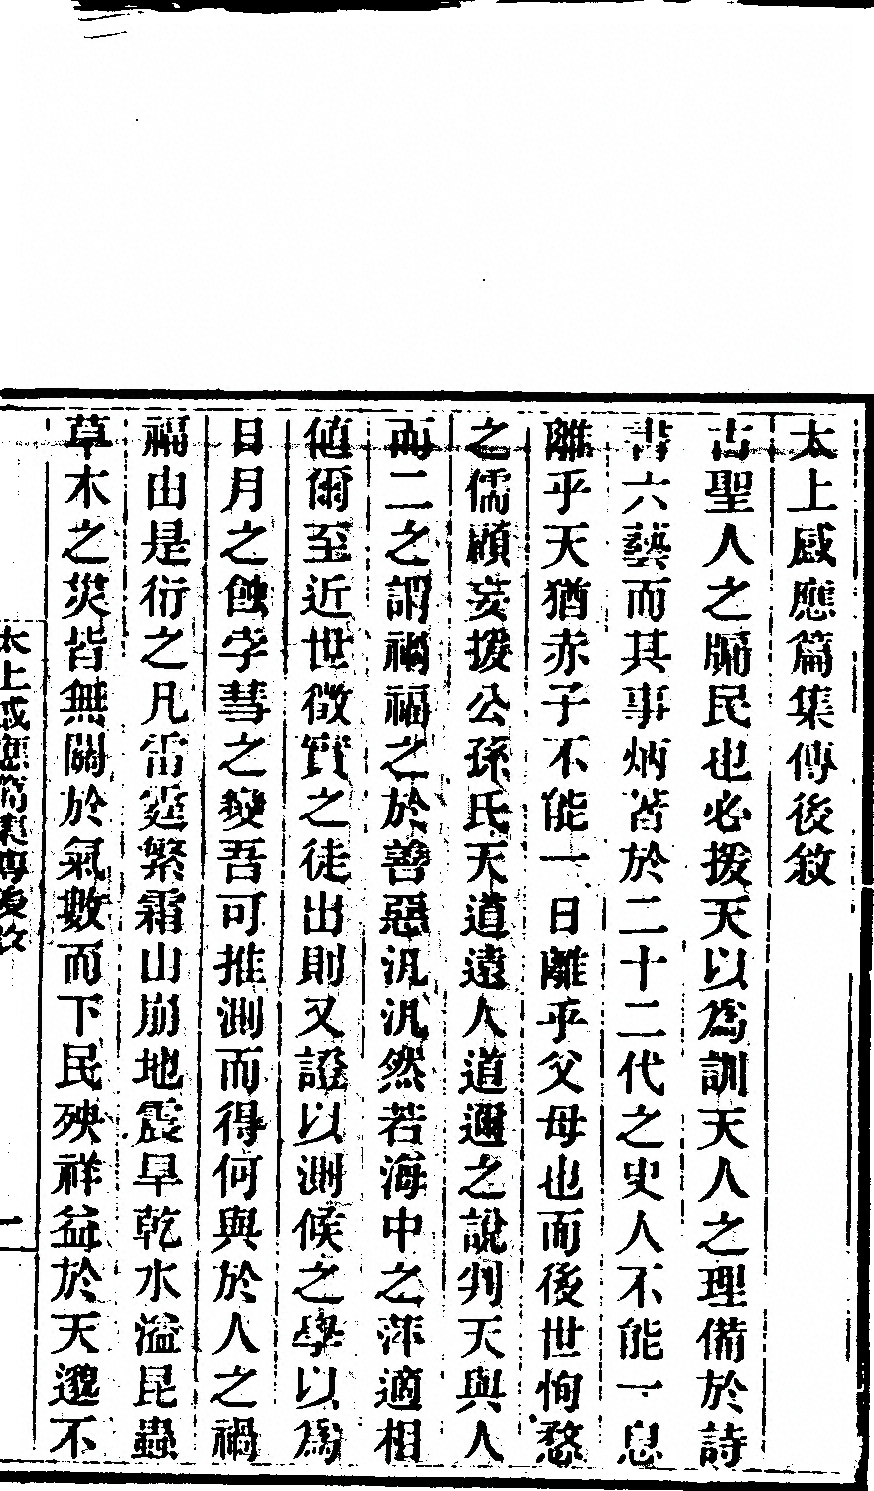 太上感應篇集傳後敘
古聖人之牖民也必援天以爲訓天人之理備於詩
書六藝而其事炳著於二十二代之史人不能一息
離乎天猶赤子不能一日離乎父母也而後世恂愗
之儒顧妄援公孫氏天道遠人道邇之說判天與人
而二之謂禍福之於善惡汎汎然若海中之萍適相
値爾至近世徵實之徒出則又證以測候之學以爲
日月之蝕孛彗之變吾可推測而得何與於人之禍
福由是衍之凡雷霆繁霜山崩地震旱乾水溢昆蟲
草木之災皆無關於氣數而下民殃祥益於天邈不
太上感應篇集傳後敘
一